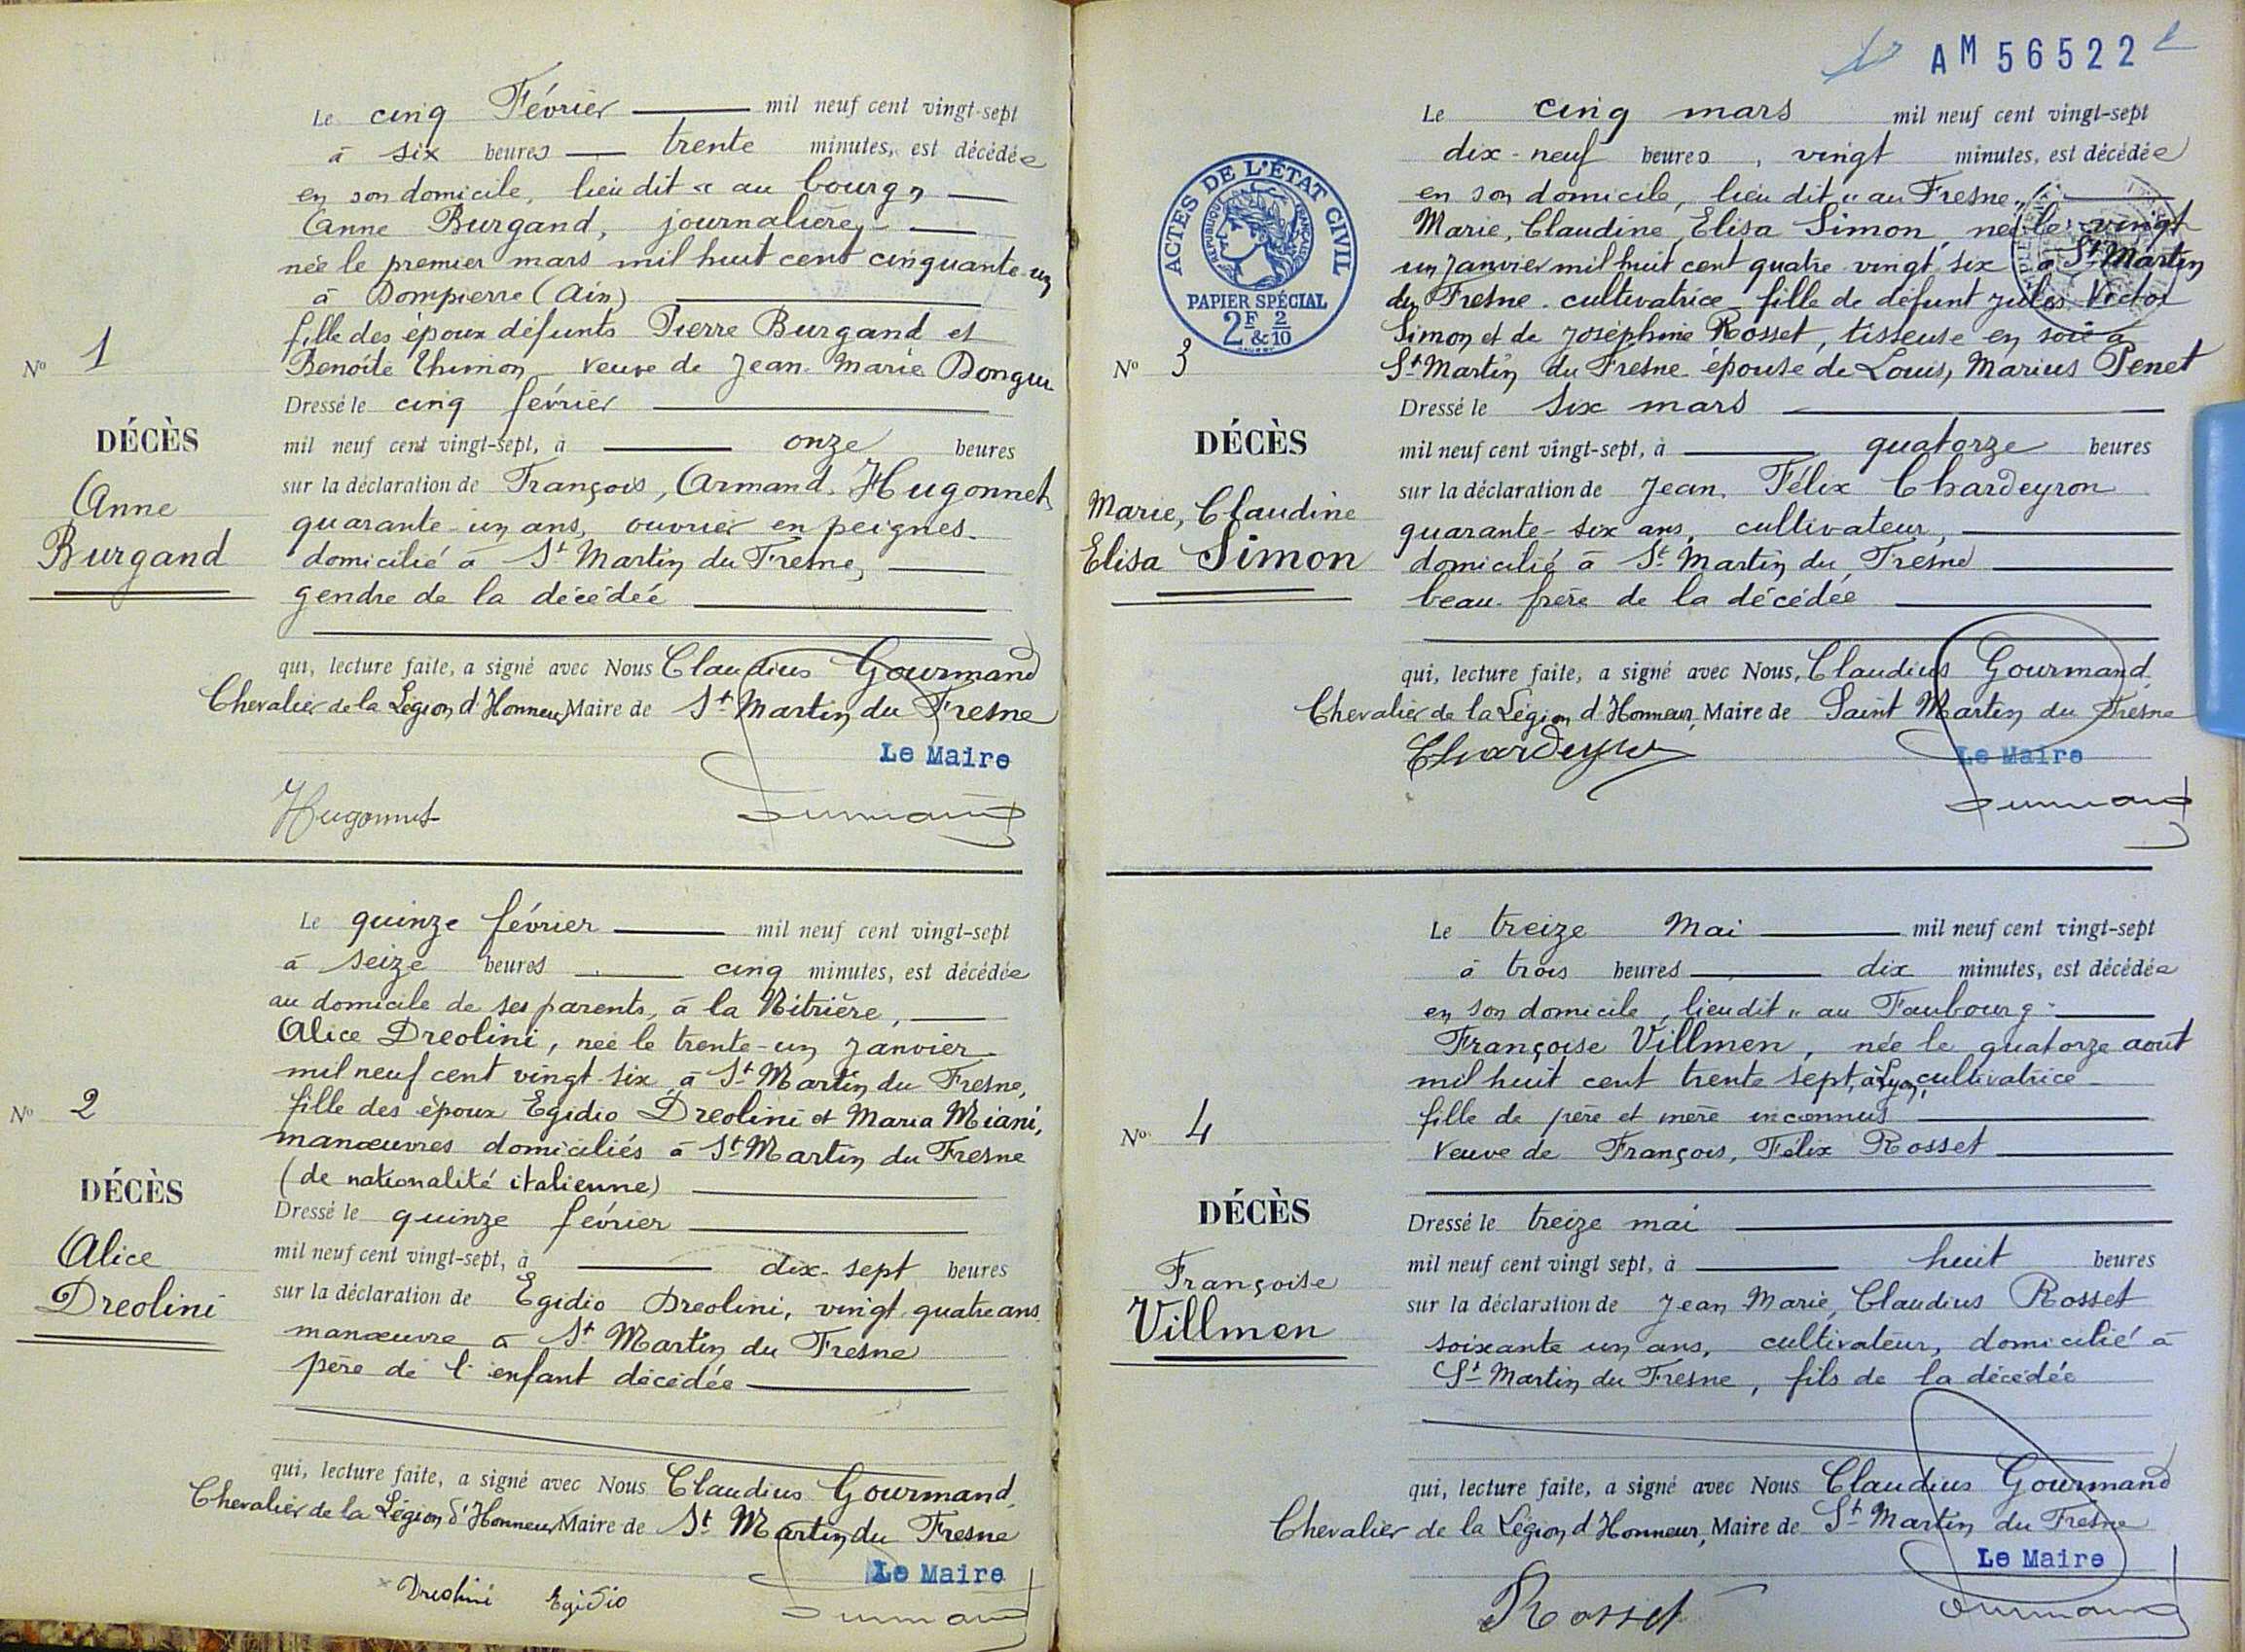 Le cinq Février mil neuf cent vingt-sept
à six heures trente minutes, est décédée
en son domicile, lieu dit « au bourg »
Anne Burgand, journalière,
née le premier mars mil huit cent cinquante-un
à Dompierre (Ain)
fille des époux défunts Pierre Burgand et
Benoîte Thimon veuve de Jean-Marie
Dressé le cinq février
mil neuf cent vingt-sept, à onze heures
sur la déclaration de François, Armand, Hugonnet
quarante-un ans, ouvrier en peignes
domicilié à St Martin du Fresne,
gendre de la décédée
qui, lecture faite, a signé avec Nous Claudius Gourmand
Chevalier de la Légion d'Honneur, Maire de St Martin du Fresne
Le Maire
Hugonnet
No 1
DÉCÈS
Anne
Burgand
Le quinze février mil neuf cent vingt-sept
à seize heures cinq minutes, est décédée
au domicile de ses parents, à la Vitrière,
Alice Dreolini, née le trente-un janvier
mil neuf cent vingt-six à St Martin du Fresne,
fille des époux Egidio Dreolini et Maria Miani,
manœuvres domiciliés à St Martin du Fresne
(de nationalité italienne)
Dressé le quinze février
mil neuf cent vingt-sept, à dix-sept heures
sur la déclaration de Egidio Dreolini, vingt-quatre ans
manœuvre à St Martin du Fresne
père de l'enfant décédée
qui, lecture faite, a signé avec Nous Claudius Gourmand,
Chevalier de la Légion d'Honneur, Maire de St Martin du Fresne
Le Maire
Dreolini Egidio
No 2
DÉCÈS
Alice
Dreolini
AM 56522
ACTES DE L'ÉTAT CIVIL
RÉPUBLIQUE FRANÇAISE
PAPIER SPÉCIAL
2F & 2/10
Le cinq mars mil neuf cent vingt-sept
dix-neuf heures, vingt minutes, est décédée
en son domicile, lieu dit « au Fresne »
Marie, Claudine, Elisa Simon, née le vingt
un janvier mil huit cent quatre vingt six à St Martin
du Fresne cultivatrice fille de défunt Jules Victor
Simon et de Joséphine Rosset, tisseuse en soie à
St Martin du Fresne épouse de Louis, Marius Penet
Dressé le six mars
mil neuf cent vingt-sept, à quatorze heures
sur la déclaration de Jean, Félix Chardeyron
quarante-six ans, cultivateur,
domicilié à St Martin du Fresne
beau-frère de la décédée
qui, lecture faite, a signé avec Nous, Claudius Gourmand
Chevalier de la Légion d'Honneur, Maire de Saint Martin du Fresne
Le Maire
Chardeyron
No 3
DÉCÈS
Marie, Claudine
Elisa Simon
Le treize Mai mil neuf cent vingt-sept
à trois heures dix minutes, est décédée
en son domicile, lieu dit « au Faubourg »
Françoise Villmen, née le quatorze août
mil huit cent trente sept, à Lyon, cultivatrice
fille de père et mère inconnus
veuve de François, Félix Rosset
Dressé le treize mai
mil neuf cent vingt sept, à huit heures
sur la déclaration de Jean Marie, Claudius Rosset
soixante un ans, cultivateur, domicilié à
St Martin du Fresne, fils de la décédée
qui, lecture faite, a signé avec Nous Claudius Gourmand
Chevalier de la Légion d'Honneur, Maire de St Martin du Fresne
Le Maire
Rosset
No 4
DÉCÈS
Françoise
Villmen